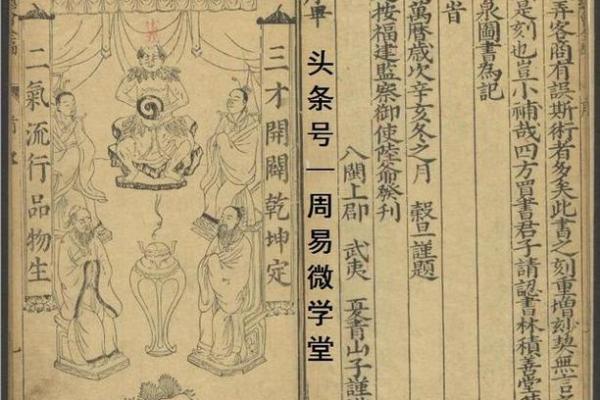 弄客商有誤斯術者多矣此書之刻重增刻無言
是刻也豈小補哉四方買書君子請認書林積善堂
泉圖書為記
旹
萬曆歲次辛亥冬之月 穀旦謹題
按福建監察御使陸爺發刊
八閩上郡 武夷 青山子謹
头条号—周易微学堂
三才開闢乾坤定
二氣流行品物生